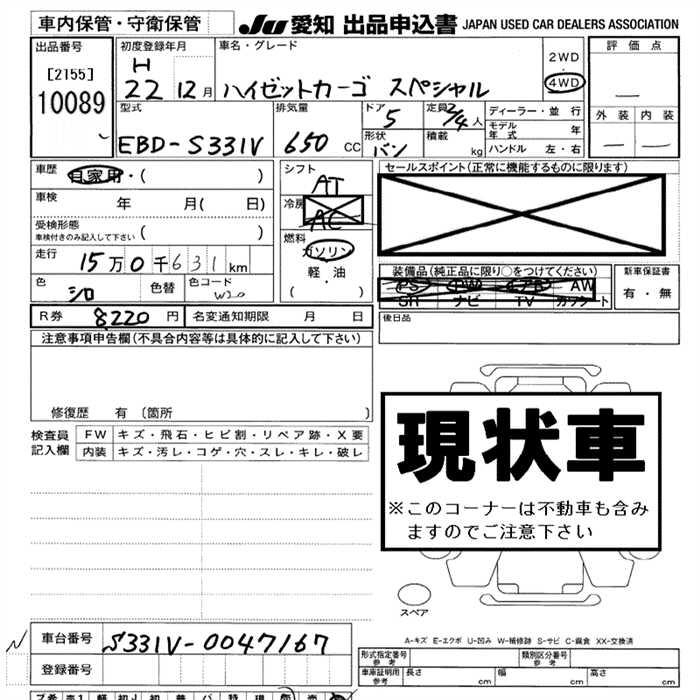 車内保管・守衛保管
JU 愛知 出品申込書 JAPAN USED CAR DEALERS ASSOCIATION
出品番号 初度登録年月 車名・グレード 2WD・4WD 評価点
[2155]
10089
H 22 12月 ハイゼットカーゴ スペシャル
―
型式 排気量 ドア 定員 ディーラー・並行 外装 内装
EBD-S331V 650 CC 5 2/4人 モデル年式 年
形状 バン 積載 kg ハンドル 左・右 ― ―
車歴 自家用・( )
シフト AT
セールスポイント(正常に機能するものに限ります)
車検 年 月( 日)
冷房 AC
受検形態 車検付きのみ記入して下さい ( )
燃料 ガソリン・軽油 ( )
走行 15万0千631km
装備品(純正品に限り○をつけてください) 新車保証書
PS PW エアB AW
SR ナビ TV カワシート
有・無
色 シロ 色替 色コード W20
R券 8220円 名変通知期限 月 日
後日品
注意事項申告欄(不具合内容等は具体的に記入して下さい)
修復歴 有 〔箇所 〕
検査員記入欄
FW キズ・飛石・ヒビ割・リペア跡・X要
内装 キズ・汚レ・コゲ・穴・スレ・キレ・破レ
現状車
※このコーナーは不動車も含み
ますのでご注意下さい
スペア
A-キズ E-エクボ U-凹み W-補修跡 S-サビ C-腐食 XX-交換済
車台番号 S331V-0047167
登録番号
形式指定番号 参考 類別区分番号 参考
車庫証明用 参考 長さ cm 幅 cm 高さ cm